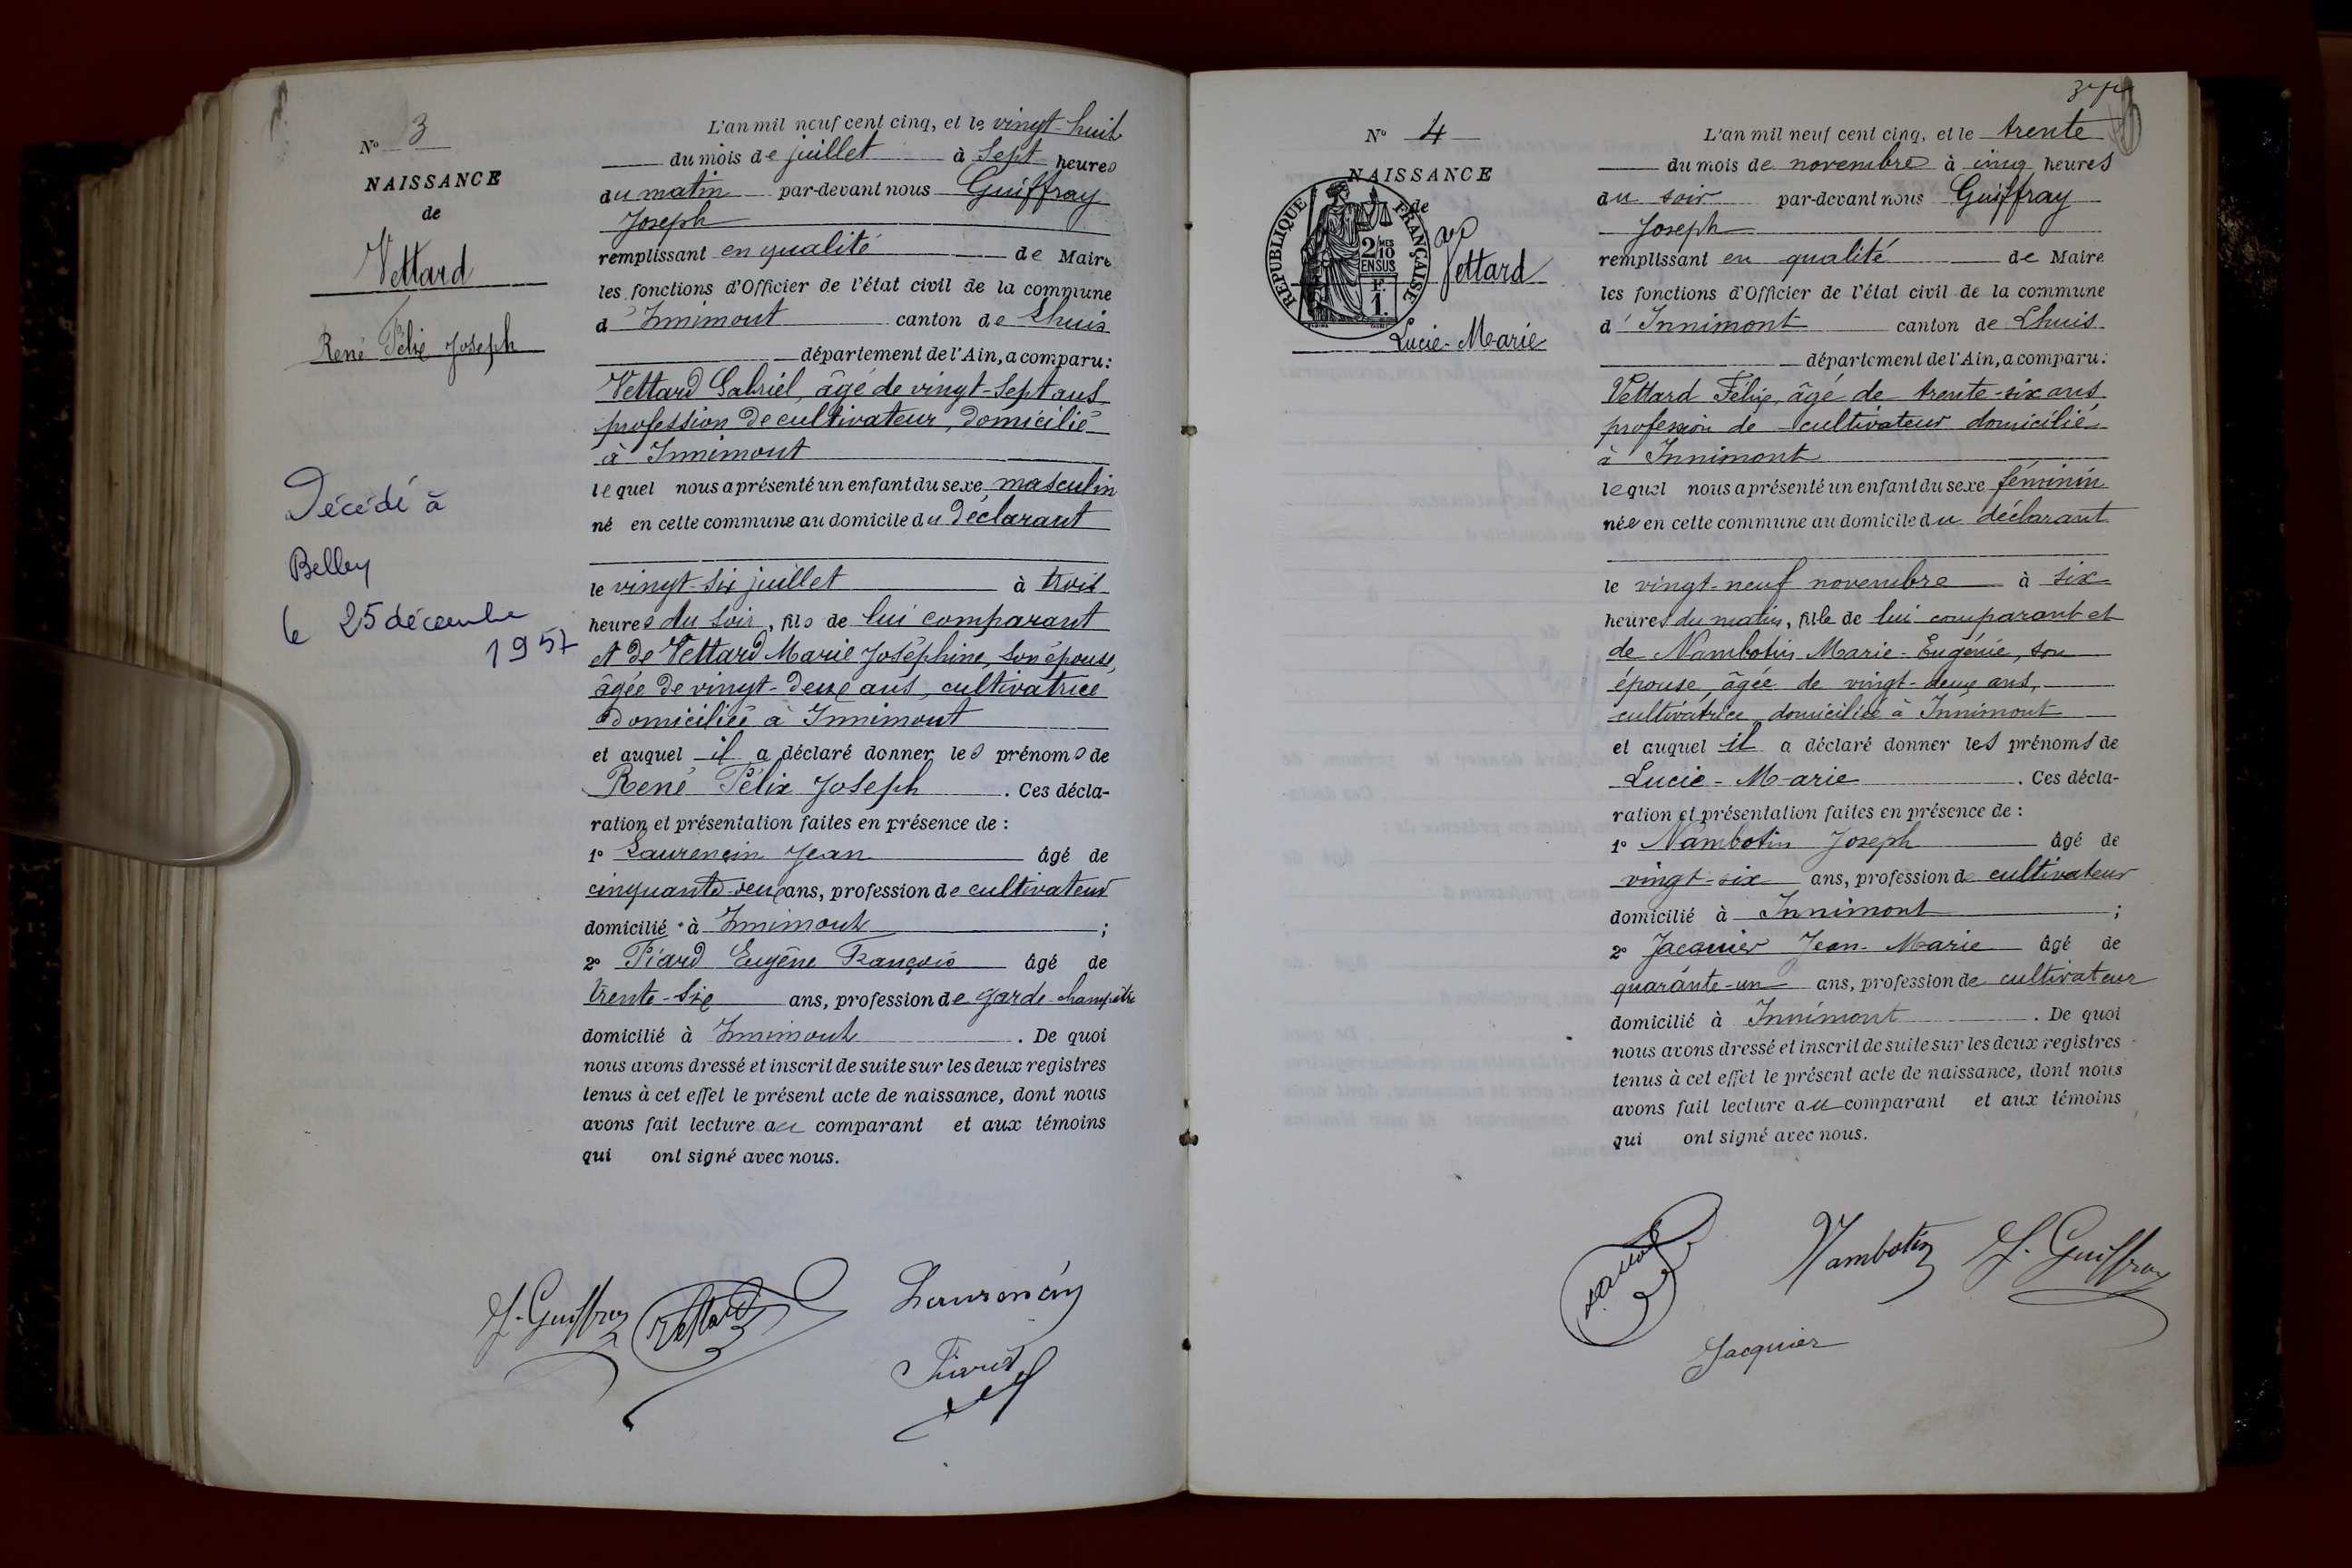 N° 3
NAISSANCE
de
Vettard
René Félix Joseph
Décédé à
Belley
le 25 décembre
1957
L'an mil neuf cent cinq, et le vingt-huit
du mois de juillet à sept heures
du matin par-devant nous Guiffray
Joseph
remplissant en qualité de Maire
les fonctions d'Officier de l'état civil de la commune
d'Innimont canton de Lhuis
département de l'Ain, a comparu:
Vettard Gabriel, âgé de vingt-sept ans,
profession de cultivateur, domicilié
à Innimont
lequel nous a présenté un enfant du sexe masculin
né en cette commune au domicile du déclarant
le vingt-six juillet à trois
heures du soir, fils de lui comparant
et de Vettard Marie Joséphine, son épouse,
âgée de vingt-deux ans, cultivatrice
domiciliée à Innimont
et auquel il a déclaré donner les prénoms de
René Félix Joseph. Ces décla-
ration et présentation faites en présence de:
1° Laurencin Jean âgé de
cinquante-deux ans, profession de cultivateur
domicilié à Innimont;
2° Piard Eugène François âgé de
trente-six ans, profession de garde-champêtre
domicilié à Innimont. De quoi
nous avons dressé et inscrit de suite sur les deux registres
tenus à cet effet le présent acte de naissance, dont nous
avons fait lecture au comparant et aux témoins
qui ont signé avec nous.
J. Guiffray Vettard Laurencin
Piard
N° 4
NAISSANCE
de
RÉPUBLIQUE FRANÇAISE
2/10 MES
EN SUS
F.
1.
Vettard
Lucie-Marie
L'an mil neuf cent cinq, et le trente
du mois de novembre à cinq heures
du soir par-devant nous Guiffray
Joseph
remplissant en qualité de Maire
les fonctions d'Officier de l'état civil de la commune
d'Innimont canton de Lhuis
département de l'Ain, a comparu:
Vettard Félix, âgé de trente-six ans
profession de cultivateur domicilié
à Innimont
lequel nous a présenté un enfant du sexe féminin
née en cette commune au domicile du déclarant
le vingt-neuf novembre à six
heures du matin, fille de lui comparant et
de Nambotin Marie-Eugénie, son
épouse, âgée de vingt-deux ans,
cultivatrice domiciliée à Innimont
et auquel il a déclaré donner les prénoms de
Lucie-Marie. Ces décla-
ration et présentation faites en présence de:
1° Nambotin Joseph âgé de
vingt-six ans, profession de cultivateur
domicilié à Innimont;
2° Jacquier Jean-Marie âgé de
quarante-un ans, profession de cultivateur
domicilié à Innimont. De quoi
nous avons dressé et inscrit de suite sur les deux registres
tenus à cet effet le présent acte de naissance, dont nous
avons fait lecture au comparant et aux témoins
qui ont signé avec nous.
Nambotin J. Guiffray
Jacquier